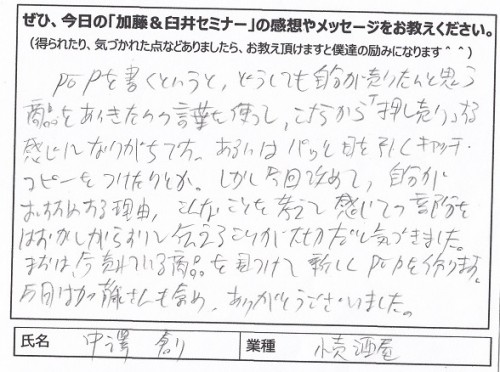 ぜひ、今日の「加藤＆臼井セミナー」の感想やメッセージをお教えください。
(得られたり、気づかれた点などありましたら、お教え頂けますと僕達の励みになります＾＾)
POPを書くというと、どうしても自分が売りたいと思う
商品をありきたりの言葉を使って、こちらから「押し売り」する
感じになりがちです。あるいはパッと目を引くキャッチ・
コピーをつけたりとか。しかし今回改めて、自分が
おすすめする理由、こんなことを考えて感じてる部分を
はずかしがらずに伝えることが大切だと気づきました。
まずは、今売れている商品を見つけて新しくPOPを作ります。
今回は加藤さんも含め、ありがとうございました。
氏名 中澤 創 業種 小売酒屋